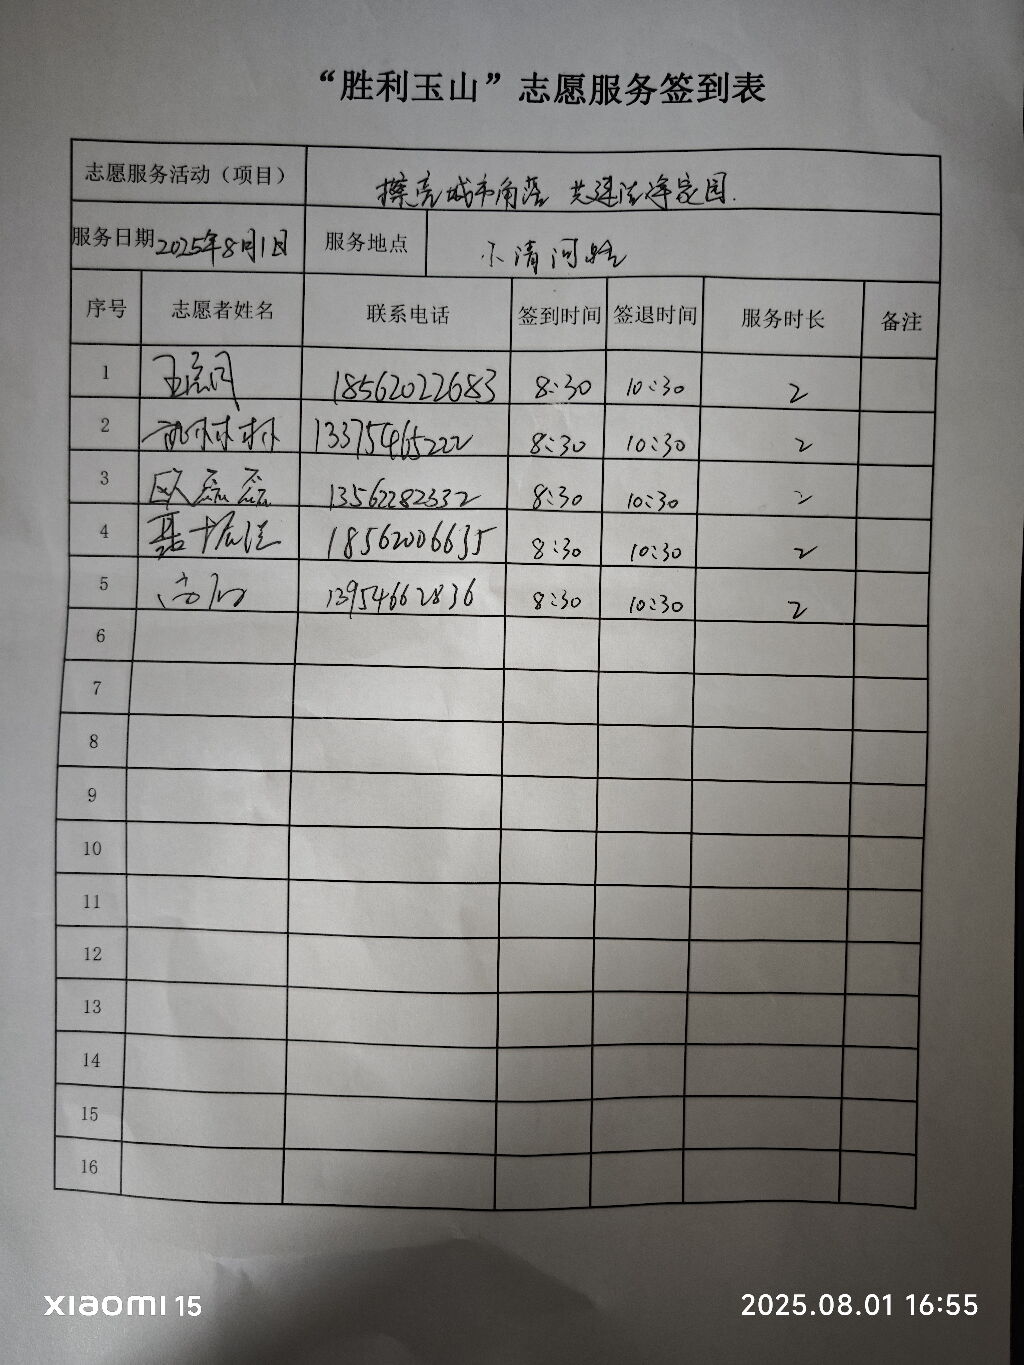 “胜利玉山”志愿服务签到表
志愿服务活动（项目） 擦亮城市角落 共建洁净家园.
服务日期 2025年8月1日 服务地点 小清河路
序号 志愿者姓名 联系电话 签到时间 签退时间 服务时长 备注
1 18562022683 8:30 10:30 2
2 13375465222 8:30 10:30 2
3 欧磊磊 13562282332 8:30 10:30 2
4 18562006635 8:30 10:30 2
5 13954662836 8:30 10:30 2
6
7
8
9
10
11
12
13
14
15
16
xiaomi 15
2025.08.01 16:55